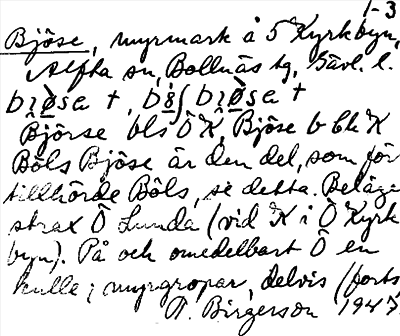 1-3
Bjöse, myrmark å 5 Kyrkbyn,
Alfta sn, Bollnäs tg, Gävl. l.
Björse bls Ö K, Bjöse b bk K
Böls Bjöse är den del, som för
tillhörde Böls, se detta. Beläge
strax Ö Lunda (vid K i Ö Kyrk
byn). På och omedelbart Ö en
kulle; myrgropar, delvis (forts
T. Birgerson 1947